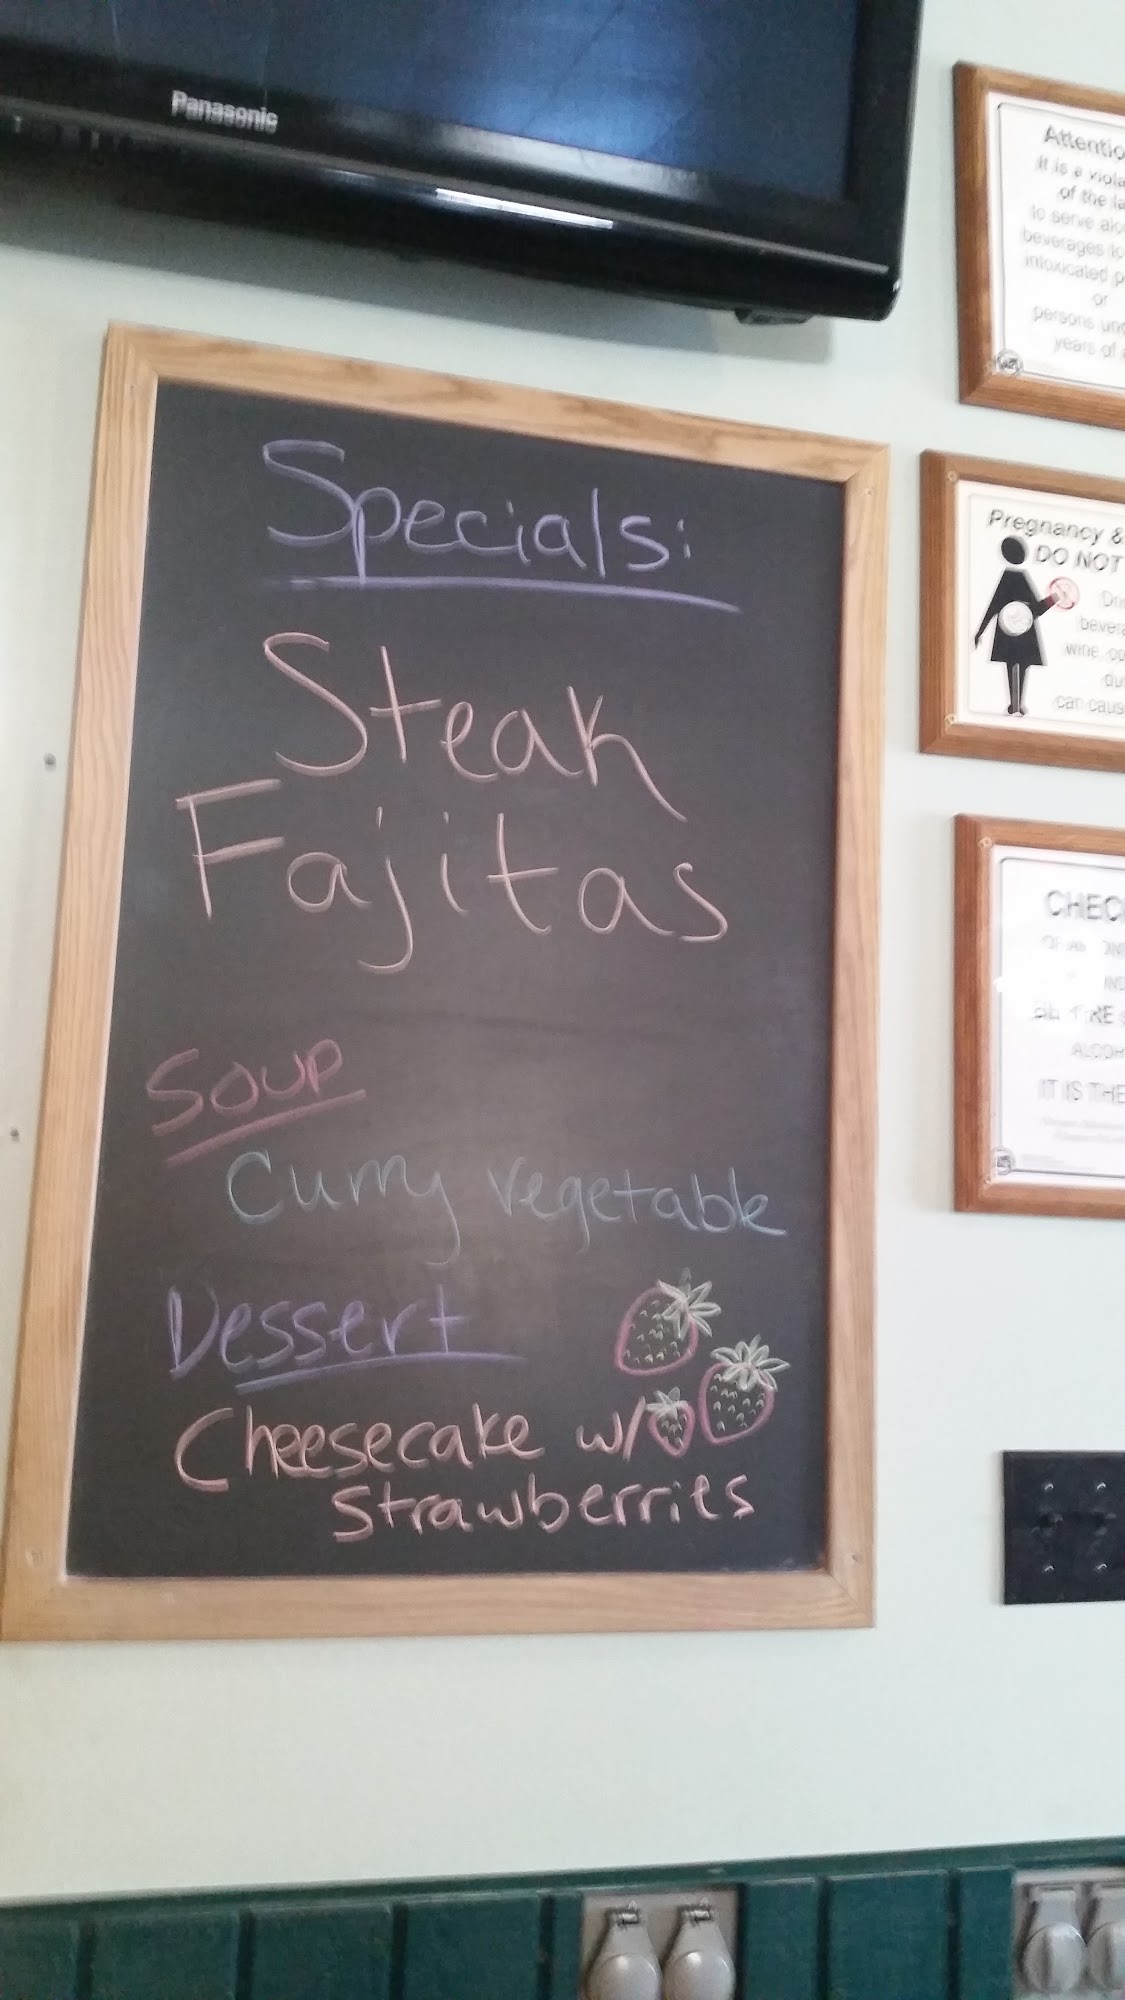 Panasonic
Specials:
Steak
Fajitas
Soup
Curry vegetable
Dessert
Cheesecake w/
Strawberries
Attentio
It is a viola
of the la
to serve alco
beverages to
intoxicated p
or
persons und
years of a
Pregnancy &
DO NOT
Drin
bevera
wine, co
dur
can cause
CHECK
ALCOH
IT IS THE